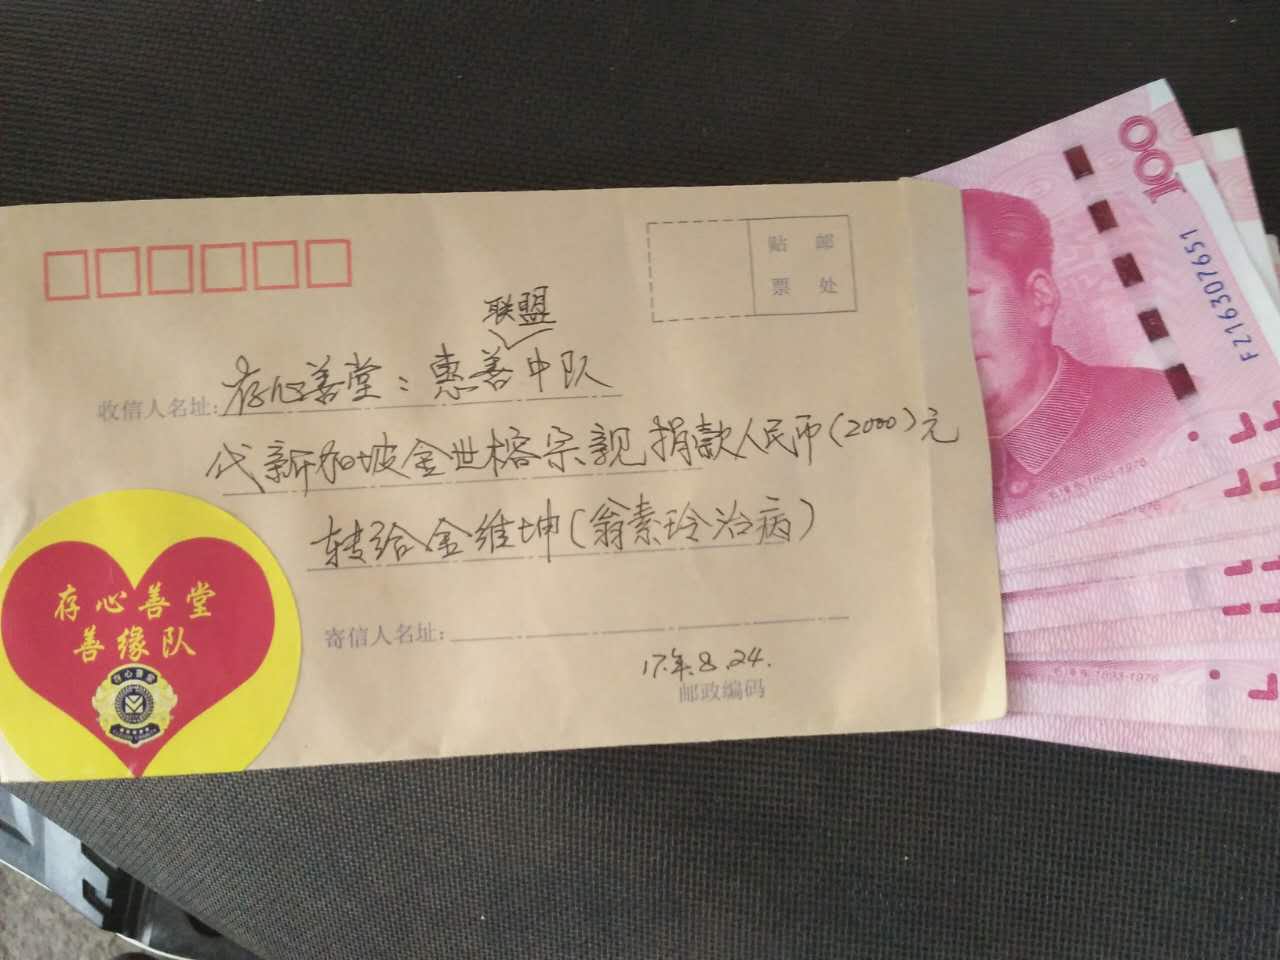 贴 邮
票 处
联盟
收信人名址: 存心善堂：惠善中队
代新加坡金世榕宗亲捐款人民币(2000)元
转给金维坤(翁素玲治病)
寄信人名址:
17年.8.24.
邮政编码
存心善堂
善缘队
存心善堂
100
FZ16307651
1893-1976
1893-1976